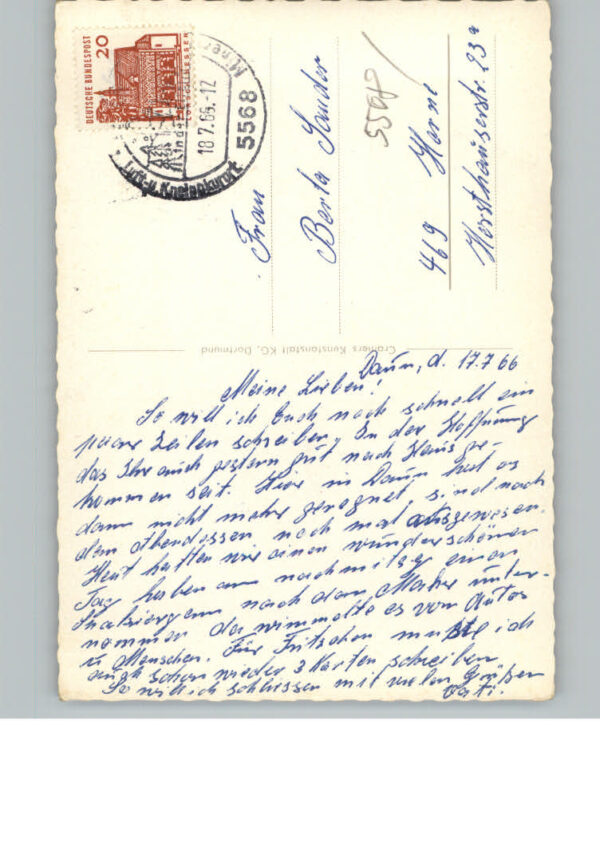 DEUTSCHE BUNDESPOST
20
LORSCH/HESSEN
18.7.66.-12
5568
Luft-u. Kneippkurort
Frau
Berta Sander
469 Herne
Horsthauserstr. 23a
Cramers Kunstanstalt KG, Dortmund
Daun, d. 17.7.66
Meine Lieben!
So will ich Euch noch schnell ein
paar Zeilen schreiben, In der Hoffnung
das Ihr auch gestern gut nach Haus ge-
kommen seit. Hier in Daun hat es
dann nicht mehr geregnet, sind nach
dem Abendessen noch mal ausgewesen.
Heut hatten wir einen wunderschönen
Tag haben am nachmittag einen
Spaziergang nach dem Maher unter-
nommen da wimmelte es von Autos
u. Menschen. Für Fritschen mußte ich
auch schon wieder 3 Karten schreiben
So will ich schliessen mit vielen Grüßen
Vati.